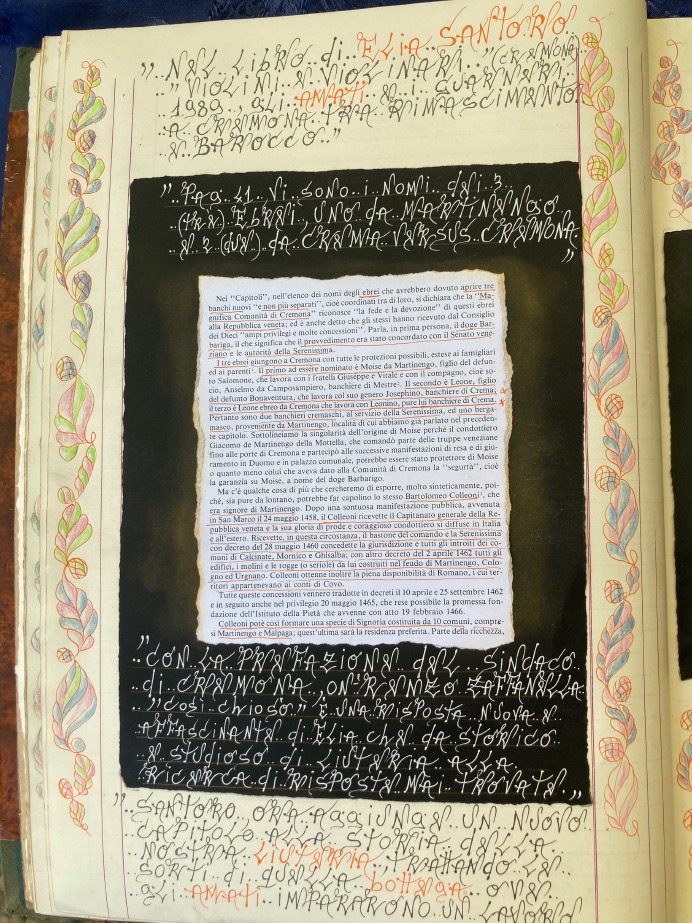 ".. NEL.. LIBRO.. di.. ELIA SANTORO..
.." VIOLINI.. E VIOLINARI.." (CREMONA)
1989.., GLI.. AMATI.. E.. i.. GUARNERI..
A.. CREMONA.. TRA.. RINASCIMENTO
E.. BAROCCO.."
".. PAG.. 41.. Vi.. SONO.. i.. NOMi.. dEi.. 3..
..(TRE).. EBREi.., UNO.. dA.. MARTINENGO..
..E.. 2 (dUE).. dA.. CREMA.. VERSUS.. CREMONA..
"
Nei "Capitoli", nell'elenco dei nomi degli ebrei che avrebbero dovuto aprire tre
banchi nuovi "e non più separati", cioè coordinati tra di loro, si dichiara che la "Ma-
gnifica Comunità di Cremona" riconosce "la fede e la devozione" di questi ebrei
alla Repubblica veneta; ed è anche detto che gli stessi hanno ricevuto dal Consiglio
dei Dieci "ampi privilegi e molte concessioni". Parla, in prima persona, il doge Bar-
barigo, il che significa che il provvedimento era stato concordato con il Senato vene-
ziano e le autorità della Serenissima.
I tre ebrei giungono a Cremona con tutte le protezioni possibili, estese ai famigliari
ed ai parenti¹. Il primo ad essere nominato è Moise da Martinengo, figlio del defun-
to Salomone, che lavora con i fratelli Giuseppe e Vitale e con il compagno, cioè so-
cio, Anselmo da Camposampiero, banchiere di Mestre². Il secondo è Leone, figlio
del defunto Bonaventura, che lavora col suo genero Josephino, banchiere di Crema;
il terzo è Leone ebreo da Crema che lavora con Leonino, pure lui banchiere di Crema.
Pertanto sono due banchieri cremaschi, al servizio della Serenissima, ed uno berga-
masco, proveniente da Martinengo, località di cui abbiamo già parlato nel preceden-
te capitolo. Sottolineiamo la singolarità dell'origine di Moise perché il condottiero
Giacomo de Martinengo della Mottella, che comandò parte delle truppe veneziane
fino alle porte di Cremona e partecipò alle successive manifestazioni di resa e di giu-
ramento in Duomo e in palazzo comunale, potrebbe essere stato protettore di Moise
o quanto meno colui che aveva dato alla Comunità di Cremona la "segurtà", cioè
la garanzia su Moise, a nome del doge Barbarigo.
Ma c'è qualche cosa di più che cercheremo di esporre, molto sinteticamente, poi-
ché, sia pure da lontano, potrebbe far capolino lo stesso Bartolomeo Colleoni³, che
era signore di Martinengo. Dopo una sontuosa manifestazione pubblica, avvenuta
in San Marco il 24 maggio 1458, il Colleoni ricevette il Capitanato generale della Re-
pubblica veneta e la sua gloria di prode e coraggioso condottiero si diffuse in Italia
e all'estero. Ricevette, in questa circostanza, il bastone del comando e la Serenissima
con decreto del 28 maggio 1460 concedette la giurisdizione e tutti gli introiti dei co-
muni di Calcinate, Mornico e Ghisalba; con altro decreto del 2 aprile 1462 tutti gli
edifici, i molini e le rogge (o seriole) da lui costruiti nel feudo di Martinengo, Colo-
gno ed Urgnano. Colleoni ottenne inoltre la piena disponibilità di Romano, i cui ter-
ritori appartenevano ai conti di Covo.
Tutte queste concessioni vennero tradotte in decreti il 10 aprile e 25 settembre 1462
e in seguito anche nel privilegio 20 maggio 1465, che rese possibile la promessa fon-
dazione dell'Istituto della Pietà che avvenne con atto 19 febbraio 1466.
Colleoni potè così formare una specie di Signoria costituita da 10 comuni, compre-
si Martinengo e Malpaga; quest'ultima sarà la residenza preferita. Parte della ricchezza,
"
..CON.. LA.. PREFAZIONE.. dEL.. SINdACO..
di.. CREMONA.., ON.. RENZO.. ZAFFANELLA..
.." COSì.. CHIOSO.." E.. UNA.. RISPOSTA.. NUOVA.. E..
AFFASCINANTE.. di.. ELIA.. CHE.. dA.. STORICO..
E.. STUdIOSO.. di.. LIUTERIA.. ALLA..
RICERCA.. di.. RISPOSTE.. MAI.. TROVATE.. "
".. SANTORO.. ORA.. AGGIUNGE.. UN.. NUOVO..
CAPITOLO.. ALLA.. STORIA.. dELLA..
NOSTRA.. LIUTERIA.., TRATTANdO.. LE..
SORTI.. di.. QUELLA.. bOTTEGA.. OVE..
GLI.. AMATI.. IMPARARONO.. UN.. LAVORO..